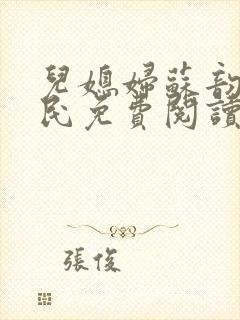 兒媳婦蘇韵
民免費閱讀
張俊